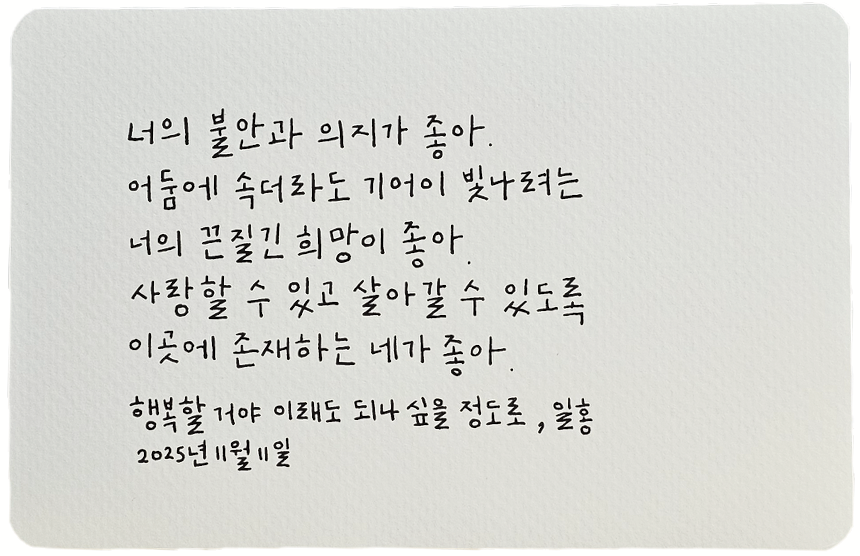 너의 불안과 의지가 좋아.
어둠에 속더라도 기어이 빛나려는
너의 끈질긴 희망이 좋아.
사랑할 수 있고 살아갈 수 있도록
이곳에 존재하는 네가 좋아.
행복할 거야 이래도 되나 싶을 정도로, 일홍
2025년 11월 11일